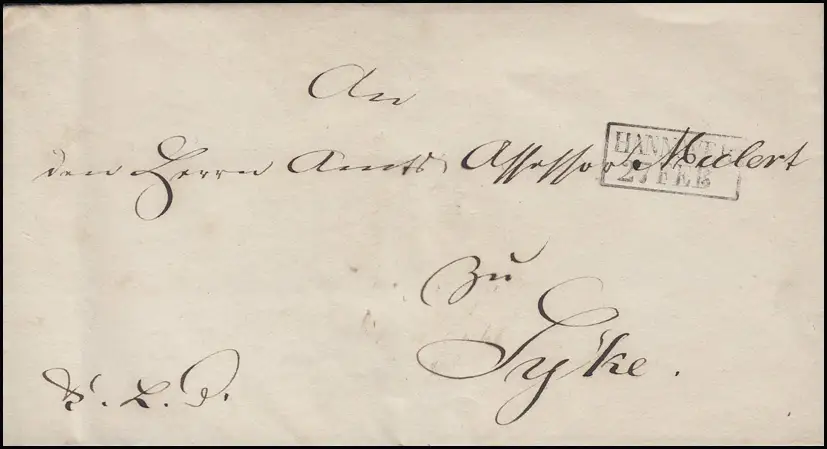 An
den Herrn Amts Assessor Mulert
HANNOVER
27 FEB
zu
Syke.